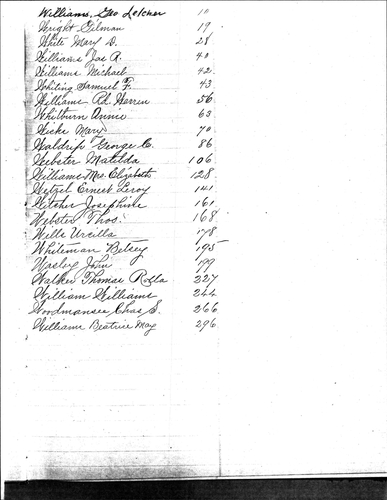 Williams, Geo Letcher 10
Wright Gilman 19
White Mary D. 28
Williams Jas A. 40
Williams Michael 42
Whiting Samuel F. 43
Williams Rd. Herrin 56
Whitburn Annie 63
Mary 70
Waldrip George C. 86
Webster Matilda 106
Williams Mrs. Elizabeth 128
Wetzel Ernest Leroy 141
Witcher Josephine 161
Webster Thos. 168
Wills Urcilla 178
Whiteman Betsey 195
Wasley John 199
Walker Thomas Rolla 227
William Williams 244
Woodmansee Chas S. 266
Williams Beatrice May 296